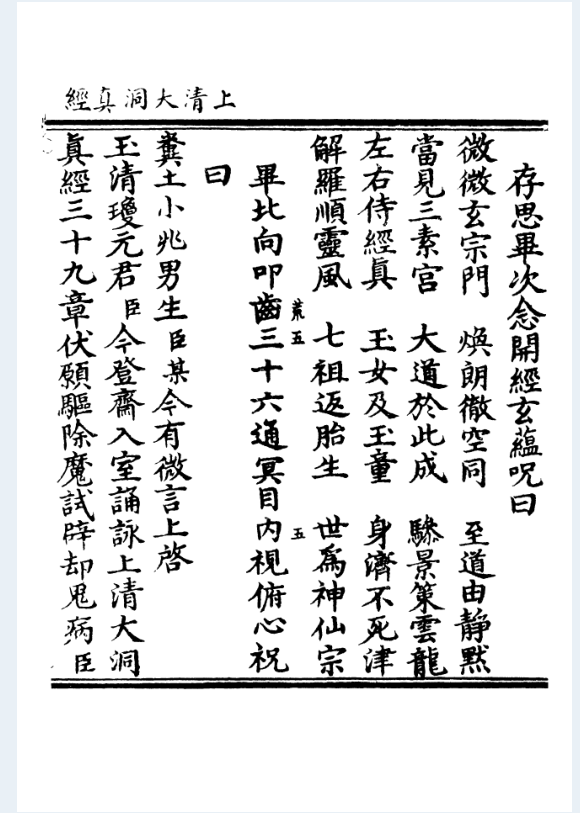 上清大洞真經
存思畢次念開經玄蘊呪曰
微微玄宗門 煥朗徹空同 至道由靜默
當見三素宮 大道於此成 驂景策雲龍
左右侍經真 玉女及玉童 身濟不死津
解羅順靈風 七祖返胎生 世爲神仙宗
畢北向叩齒三十六通冥目內視俯心祝
曰
糞土小兆男生臣某今有微言上啓
玉清瓊元君臣今登齋入室誦詠上清大洞
真經三十九章伏願驅除魔試辟却鬼病臣